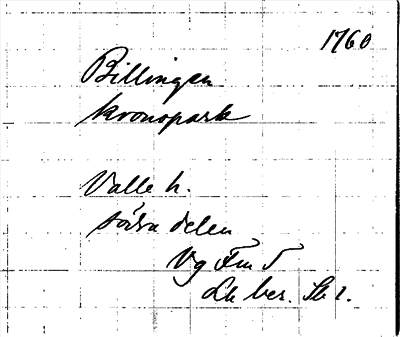 1760
Billingen
kronopark
Valle h.
södra delen
Vg Fm
ber.